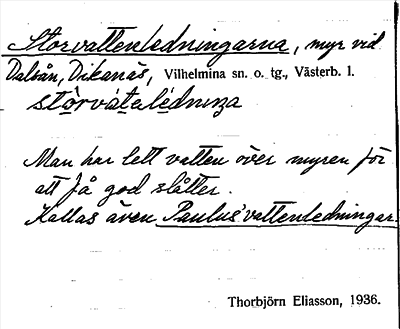 Storvattenledningarna, myr vid
Dalsån, Dikanäs, Vilhelmina sn. o. tg., Västerb. l.
Man har lett vatten över myren för
att få god slåtter.
Kallas även Paulus'vattenledningar.
Thorbjörn Eliasson, 1936.